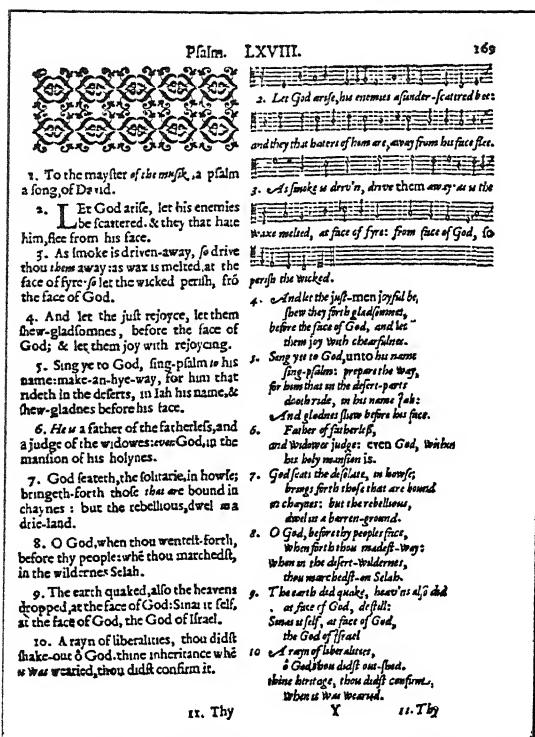 Psalm. LXVIII. 169
1. To the mayster of the musik, a psalm
a song, of David.
2. LEt God arise, let his enemies
be scattered. & they that hate
him, flee from his face.
3. As smoke is driven-away, so drive
thou them away: as wax is melted, at the
face of fyre so let the wicked perish, frō
the face of God.
4. And let the just rejoyce, let them
shew-gladsomnes, before the face of
God; & let them joy with rejoycing.
5. Sing ye to God, sing-psalm to his
name: make-an-hye-way, for him that
rideth in the deserts, in Iah his name, &
shew-gladnes before his face.
6. He is a father of the fatherless, and
a judge of the widowes: even God, in the
mansion of his holynes.
7. God seateth, the solitarie, in howse;
bringeth-forth those that are bound in
chaynes : but the rebellious, dwel in a
drie-land.
8. O God, when thou wentest-forth,
before thy people: whē thou marchedst,
in the wildernes Selah.
9. The earth quaked, also the heavens
dropped, at the face of God: Sinai it self,
at the face of God, the God of Israel.
10. A rayn of liberalities, thou didst
shake-out ô God. thine inheritance whē
it was wearied, thou didst confirm it.
11. Thy
2. Let God arise, his enemies asunder-scattred bee:
and they that haters of him are, away from his face flee.
3. As smoke is driv'n, drive them away: as is the
Waxe melted, at face of fyre: from face of God, so
perish the wicked.
4. And let the just-men joyful be,
shew they forth gladsomnes,
before the face of God, and let
them joy with chearfulnes.
5. Seng yee to God, unto his name
sing-psalm: prepare the way,
for him that in the desert-parts
dooth ride, in his name Jah:
And gladnes shew before his face.
6. Father of fatherless,
and widowes judge: even God, within
his holy mansion is.
7. God seats the desolate, in howse;
brings forth those that are bound
in chaynes: but the rebellious,
dwel in a barren-ground.
8. O God, before thy peoples face,
when forth thou madest-way:
When in the desert-wildernes,
thou marchedst-on Selah.
9. The earth did quake, heav'ns also did
at face of God, destill:
Sinai it self, at face of God,
the God of Israel
10 A rayn of liberalities,
ô God, thou didst out-shed.
thine heritage, thou didst confirm,
when it was wearied.
Y 11. Thy